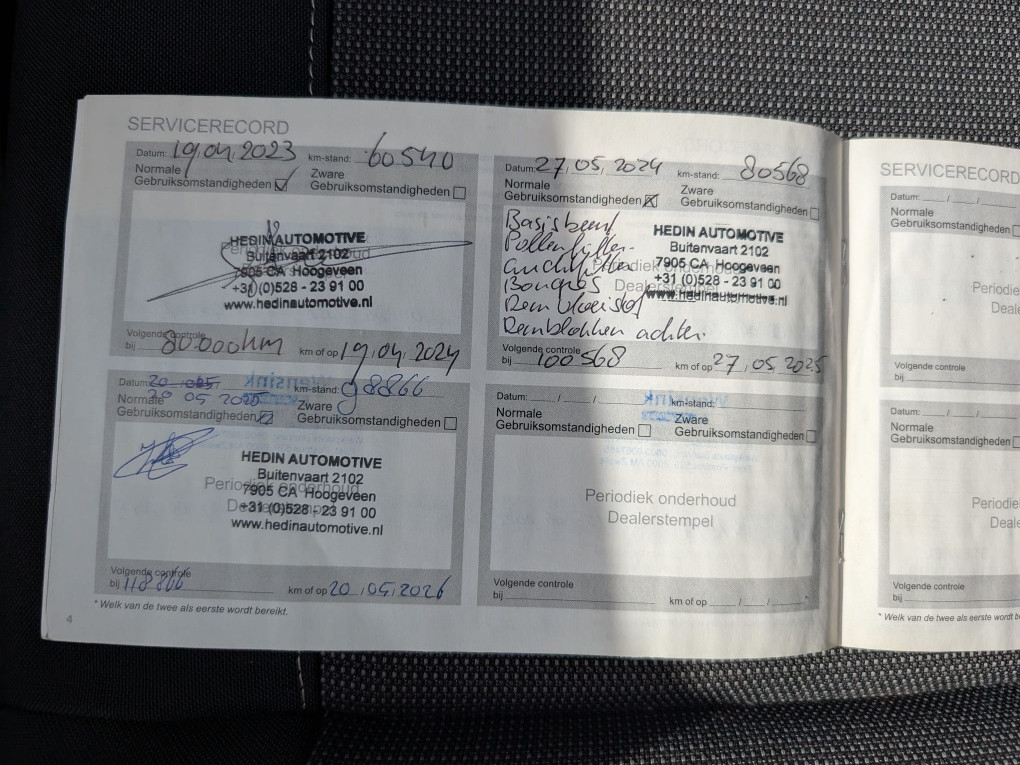 SERVICERECORD
Datum: 19,04,2023 km-stand: 60540
Normale
Gebruiksomstandigheden
Zware
Gebruiksomstandigheden
HEDIN AUTOMOTIVE
Buitenvaart 2102
7905 CA Hoogeveen
+31 (0)528 - 23 91 00
www.hedinautomotive.nl
Volgende controle
bij 80.000km km of op 19,04,2024
Datum: 27,05,2024 km-stand: 80568
Normale
Gebruiksomstandigheden
Zware
Gebruiksomstandigheden
Basisbeurt
Pollenfilter
Luchtfilter
Bougies
Remvloeistof
Remblokken achter.
HEDIN AUTOMOTIVE
Buitenvaart 2102
7905 CA Hoogeveen
Periodiek onderhoud
+31 (0)528 - 23 91 00
Dealerstempel
www.hedinautomotive.nl
Volgende controle
bij 100568 km of op 27,05,2025
Datum: km-stand: 98866
20 05 2025
Normale
Gebruiksomstandigheden
Zware
Gebruiksomstandigheden
HEDIN AUTOMOTIVE
Buitenvaart 2102
Periodiek onderhoud
7905 CA Hoogeveen
+31 (0)528 - 23 91 00
www.hedinautomotive.nl
Volgende controle
bij 118866 km of op 20,05,2026
Datum: / / km-stand:
Normale
Gebruiksomstandigheden
Zware
Gebruiksomstandigheden
Periodiek onderhoud
Dealerstempel
Volgende controle
bij km of op / /
* Welk van de twee als eerste wordt bereikt.
4
SERVICERECORD
Datum: / /
Normale
Gebruiksomstandigheden
Periodie
Deale
Volgende controle
bij
Datum: / /
Normale
Gebruiksomstandigheden
Periodie
Deale
Volgende controle
bij
* Welk van de twee als eerste wordt b